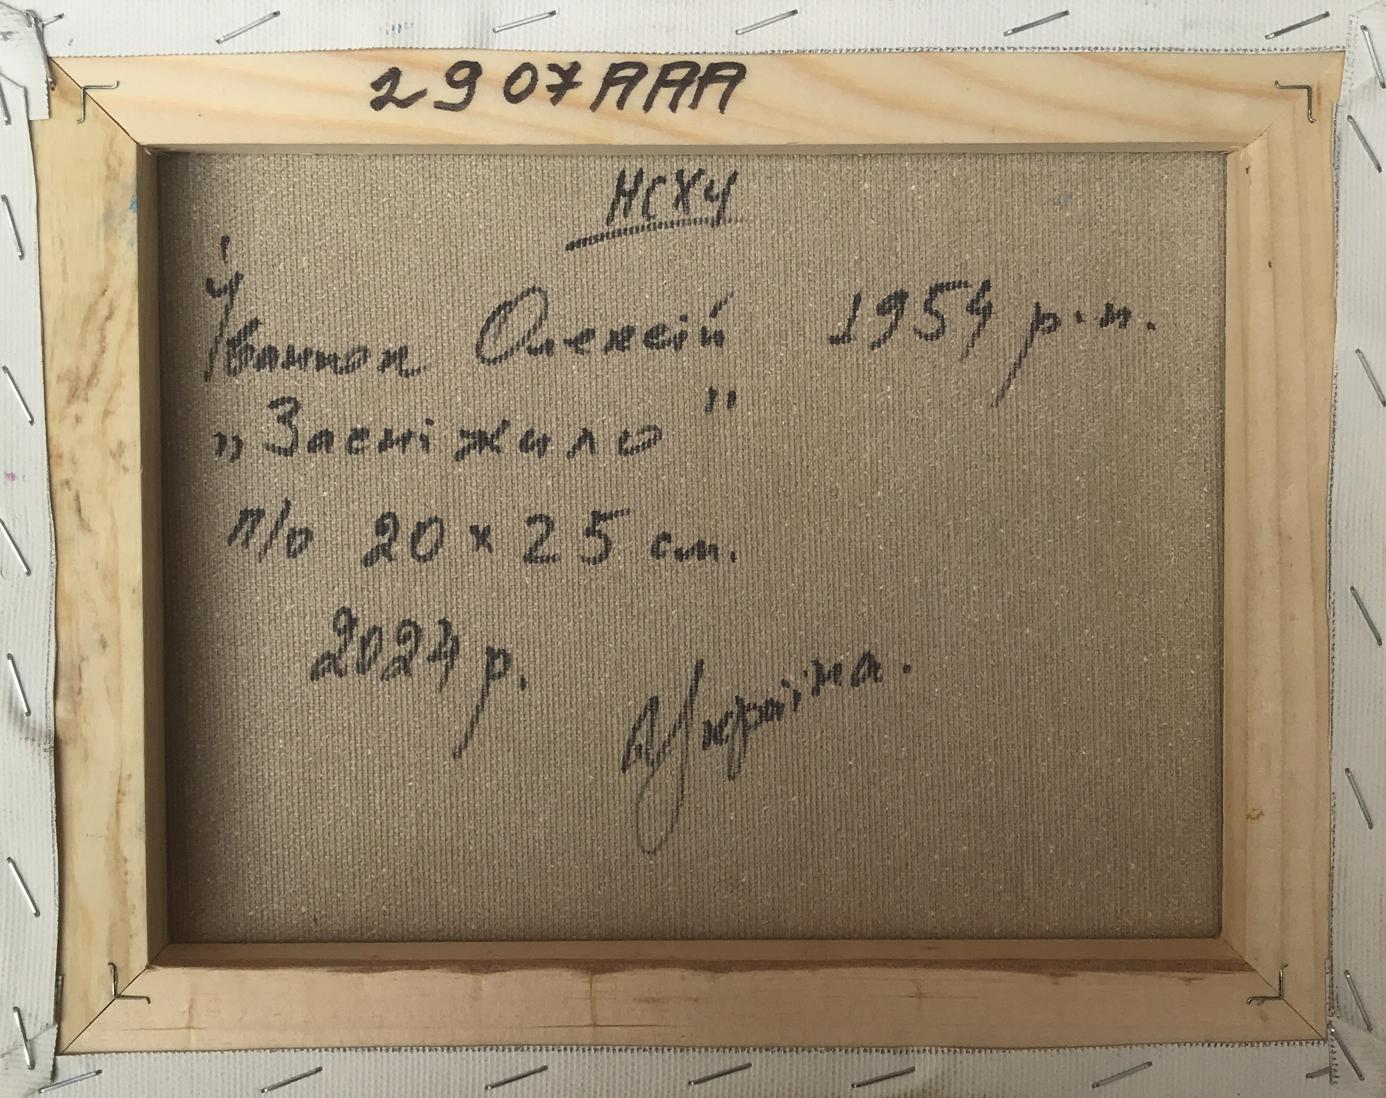 2907AAA
НСХУ
Іванюк Олексій 1954 р.н.
„Засніжило"
п/о 20 x 25 см.
2024 р.
Україна.